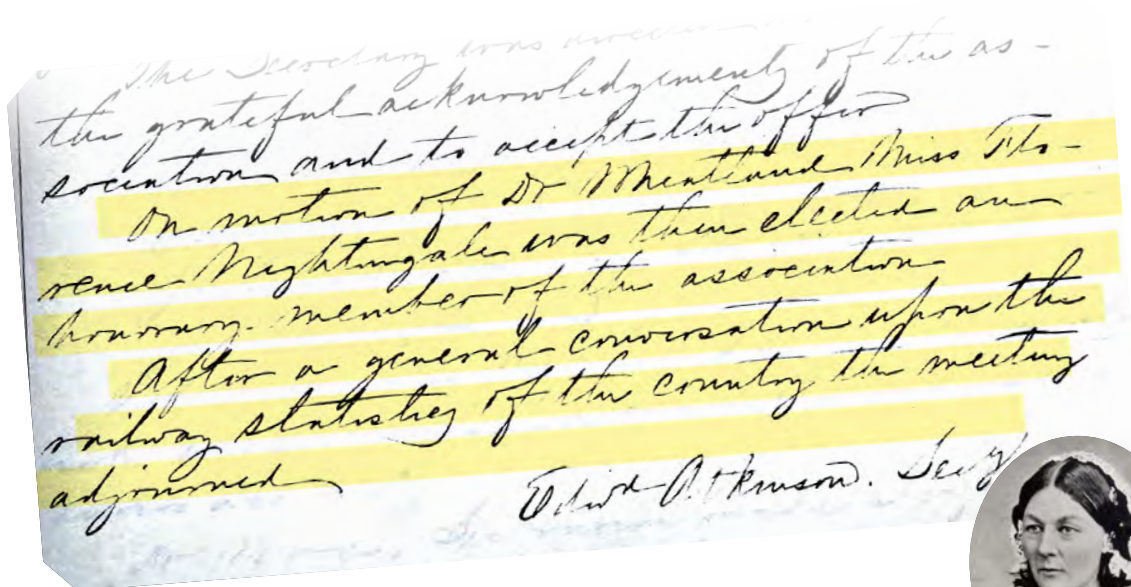 The Secretary was
the grateful acknowledgements of the as-
sociation and to accept the offer
On motion of Dr Wheatland Miss Flo-
rence Nightingale was then elected an
honorary member of the association
After a general conversation upon the
railway statistics of the country the meeting
adjourned
Edwd Atkinson. Secy